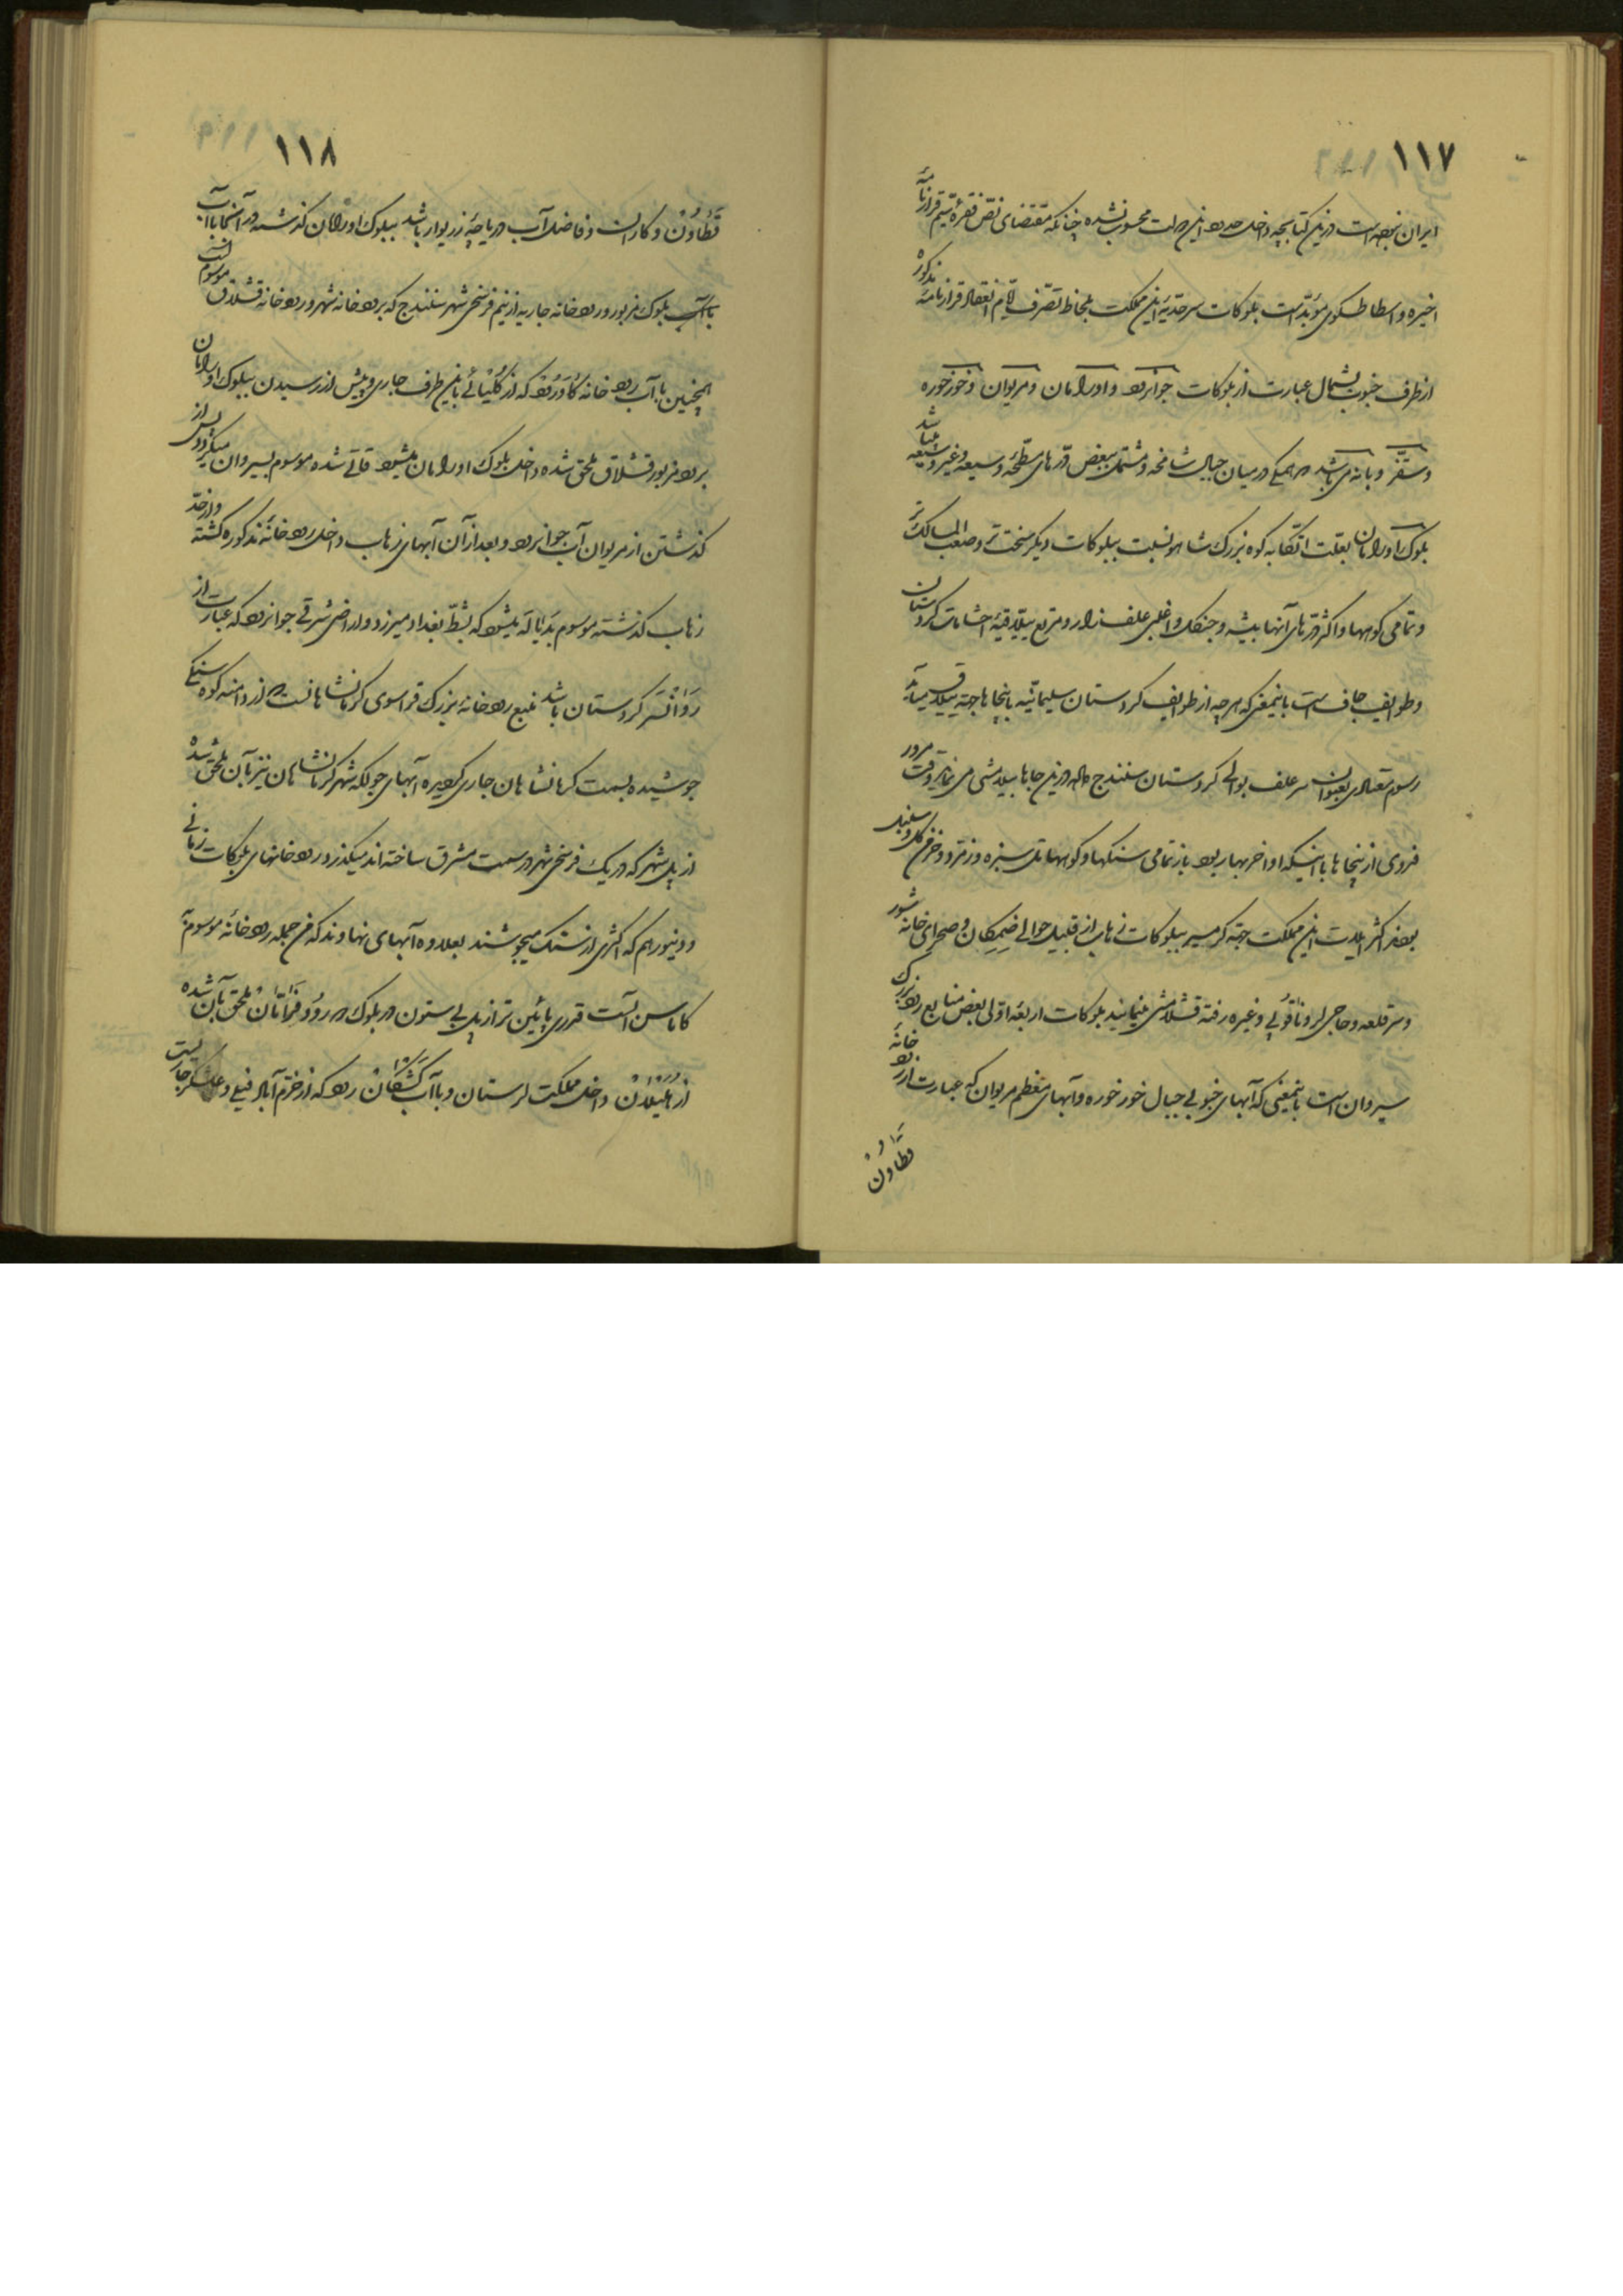 ۱۱۷
ایران بجهه است درین کتابچه داخل حدود این دولت محسوب نشده چنانکه مقتضای نص فقرهٔ سیم قرارنامهٔ
اخیره و اسطاطسکوی مؤید است بلوکات سرحدیهٔ این مملکت بلحاظ تصرف ایام انعقاد قرارنامهٔ مذکوره
از طرف جنوب بشمال عبارت از بلوکات جوانرود و اورامان و مریوان و خورخوره
و سقز و بانه می باشد که همگی در میان جبال شامخه و مشتمل ببعض درّه های مسطحه و وسیعه و غیر وسیعه میباشد
بلوک اورامان بعلت اتکا به کوه بزرک شاهو نسبت ببلوکات دیکر سخت تر و صعب المسالک تر
و تمامی کوهها و اکثر درّه های آنها بیشه و جنکل و اغلبی علفزار و مرتع ییلاقیهٔ احشامات کردستان
و طوایف جاف است باینمعنی که هرچه از طوایف کردستان سلیمانیه باینجاها جهة ییلاق میآید
رسوم معتادی بعنوان سر علف بوالی کردستان سنندج داده درین جاها ییلامشی می نماید وقت مرور
فروی از اینجاها با اینکه اواخر بهار بود باز تمامی سنکها و کوهها تل سبزه و زمرد و خرمن کل و سنبل
بود اکثر ایلات این مملکت جهة کرمسیر ببلوکات زهاب از قبیل حوالی ضمکان و صحرای خانه شور
و سرقلعه و حاجی لر و ناقولی و غیره رفته قشلامشی مینمایند بلوکات اربعهٔ اولی بعض منابع رود بزرک
سیروان است باینمعنی که آبهای جنوبی جبال خورخوره و آبهای معظم مریوان که عبارت از رود خانهٔ
قطاون
۱۱۸
قطاون و کاران و فاضل آب دریاچهٔ زریوار باشد ببلوک اورامان کذشته در آنجا با آب
با آب بلوک مزبور و رودخانه جاریه از نیم فرسخی شهر سنندج که برودخانه شهر و رودخانه قشلاق موسوم است
همچنین با آب رودخانه کاورود که از کلیائی باین طرف جاری و پیش از رسیدن ببلوک اورامان
برود مزبور قشلاق ملحق شده داخل بلوک اورامان میشود قاتی شده موسوم بسیروان میکردد و پس از
کذشتن از مریوان آب جوانرود و بعد از آن آبهای زهاب داخل رودخانهٔ مذکوره کشته و از حدّ
زهاب کذشته موسوم بدیاله میشود که بشط بغداد میریزد و اراضی شرقی جوانرود که عبارت از
روانسر کردستان باشد منبع رودخانه بزرک قراسوی کرمانشاهانست که از دامنه کوه سنکی
جوشیده بسمت کرمانشاهان جاری کردیده آبهای جولکه شهر کرمانشاهان نیز بآن ملحق شده
از پل شهر که در یک فرسخی شهر در سمت مشرق ساخته اند میکذرد و رودخانهای بلوکات زمانی
و دینور هم که اکثری از سنک میجوشند بعلاوه آبهای نهاوند که من جمله رودخانهٔ موسومهٔ
کاماسن آست قدری پائین تر از پل بیستون در بلوک در رود فرامان ملحق بآن شده
از هلیلان داخل مملکت لرستان و با آب کشکان رود که از خرم آباد فیلی و علشکر جاریست